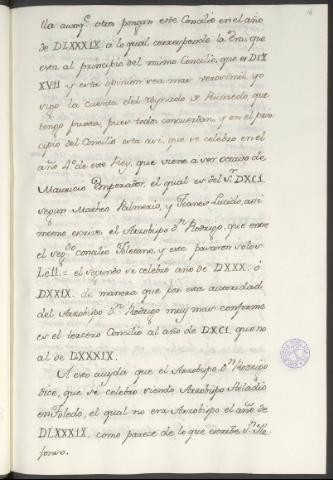 lla aunqe. otros pongan este Concilio en el año
de DLXXXIX á lo qual corresponde la Era, que
esta al principio del mismo Concilio, que es DCX
XVII y esta opinion sea mas verosimil, yo
sigo la cuenta del reynado de Ricaredo que
tengo puesta, pues todos concuertan, y en el prin
cipio del Concilio esta asi, que se celebró en el
año 4º de este Rey, que viene a ser octavo de
Mauricio Emperador, el qual es del Sr. DXC1
segun Matheo Palmerio, y Joanes Lucido, asi
mesmo escrive el Arzobispo Dn. Rodrigo, que entre
el segdo. concilio Toletano, y este pasaron solos
LeII.= el segundo se celebró año de DXXX. ó
DXXIX. de manera que por esta autoridad
del Arzobispo Dn. Rodrigo muy mas conforme
es el tercero Concilio al año de DXC1. que no
al de DXXXIX.
A esto ayuda que el Arzobispo Dn. Rodrigo
dice, que se celebro siendo Arzobispo Heladio
en Toledo, el qual no era Arzobispo el año de
DLXXXIX, como parece de lo que escribe Sn. Ile
fonso.